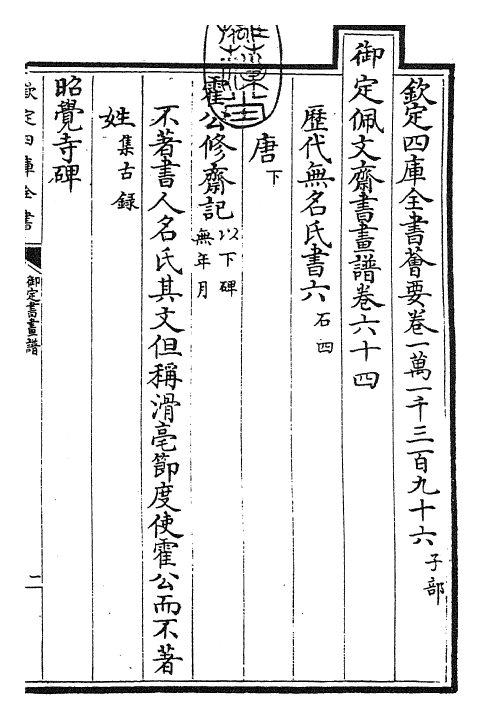 欽定四庫全書薈要卷一萬一千三百九十六 子部
御定佩文齋書畫譜卷六十四
歷代無名氏書六 石四
唐 下
霍公修齋記 以下碑無年月
不著書人名氏其文但稱滑亳節度使霍公而不著
姓 集古録
昭覺寺碑
欽定四庫全書
御定書畫譜
二